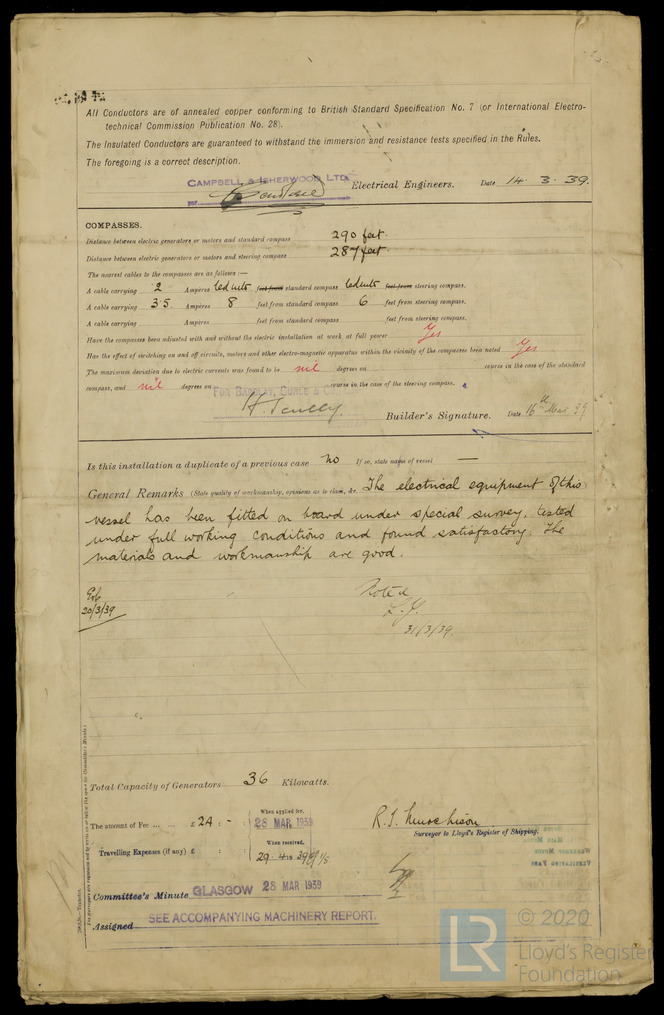 All Conductors are of annealed copper conforming to British Standard Specification No. 7 (or International Electro-
technical Commission Publication No. 28).
The Insulated Conductors are guaranteed to withstand the immersion and resistance tests specified in the Rules.
The foregoing is a correct description.
CAMPBELL & ISHERWOOD LTD.
per Electrical Engineers. Date 14. 3. 39.
COMPASSES.
Distance between electric generators or motors and standard compass 290 feet.
Distance between electric generators or motors and steering compass 287 feet.
The nearest cables to the compasses are as follows:—
A cable carrying 2 Ampères led into feet from standard compass led into feet from steering compass.
A cable carrying 3.5 Ampères 8 feet from standard compass 6 feet from steering compass.
A cable carrying Ampères feet from standard compass feet from steering compass.
Have the compasses been adjusted with and without the electric installation at work at full power Yes
Has the effect of switching on and off circuits, motors and other electro-magnetic apparatus within the vicinity of the compasses been noted Yes
The maximum deviation due to electric currents was found to be nil degrees on course in the case of the standard
compass, and nil degrees on course in the case of the steering compass.
FOR BARCLAY, CURLE & CO
H. Scully. Builder's Signature. Date 16th Mar. 39
Is this installation a duplicate of a previous case no If so, state name of vessel —
General Remarks (State quality of workmanship, opinions as to class, &c. The electrical equipment of this
vessel has been fitted on board under special survey, tested
under full working conditions and found satisfactory. The
materials and workmanship are good.
20/3/39
Noted
31/3/39.
Total Capacity of Generators 36 Kilowatts.
The amount of Fee ... ... £ 24 : - : When applied for, 28 MAR 1939
R. J. Murchison
Surveyor to Lloyd's Register of Shipping.
Travelling Expenses (if any) £ : : When received,
Committee's Minute GLASGOW 28 MAR 1939
Assigned SEE ACCOMPANYING MACHINERY REPORT.
LR © 2020
Lloyd's Register
Foundation